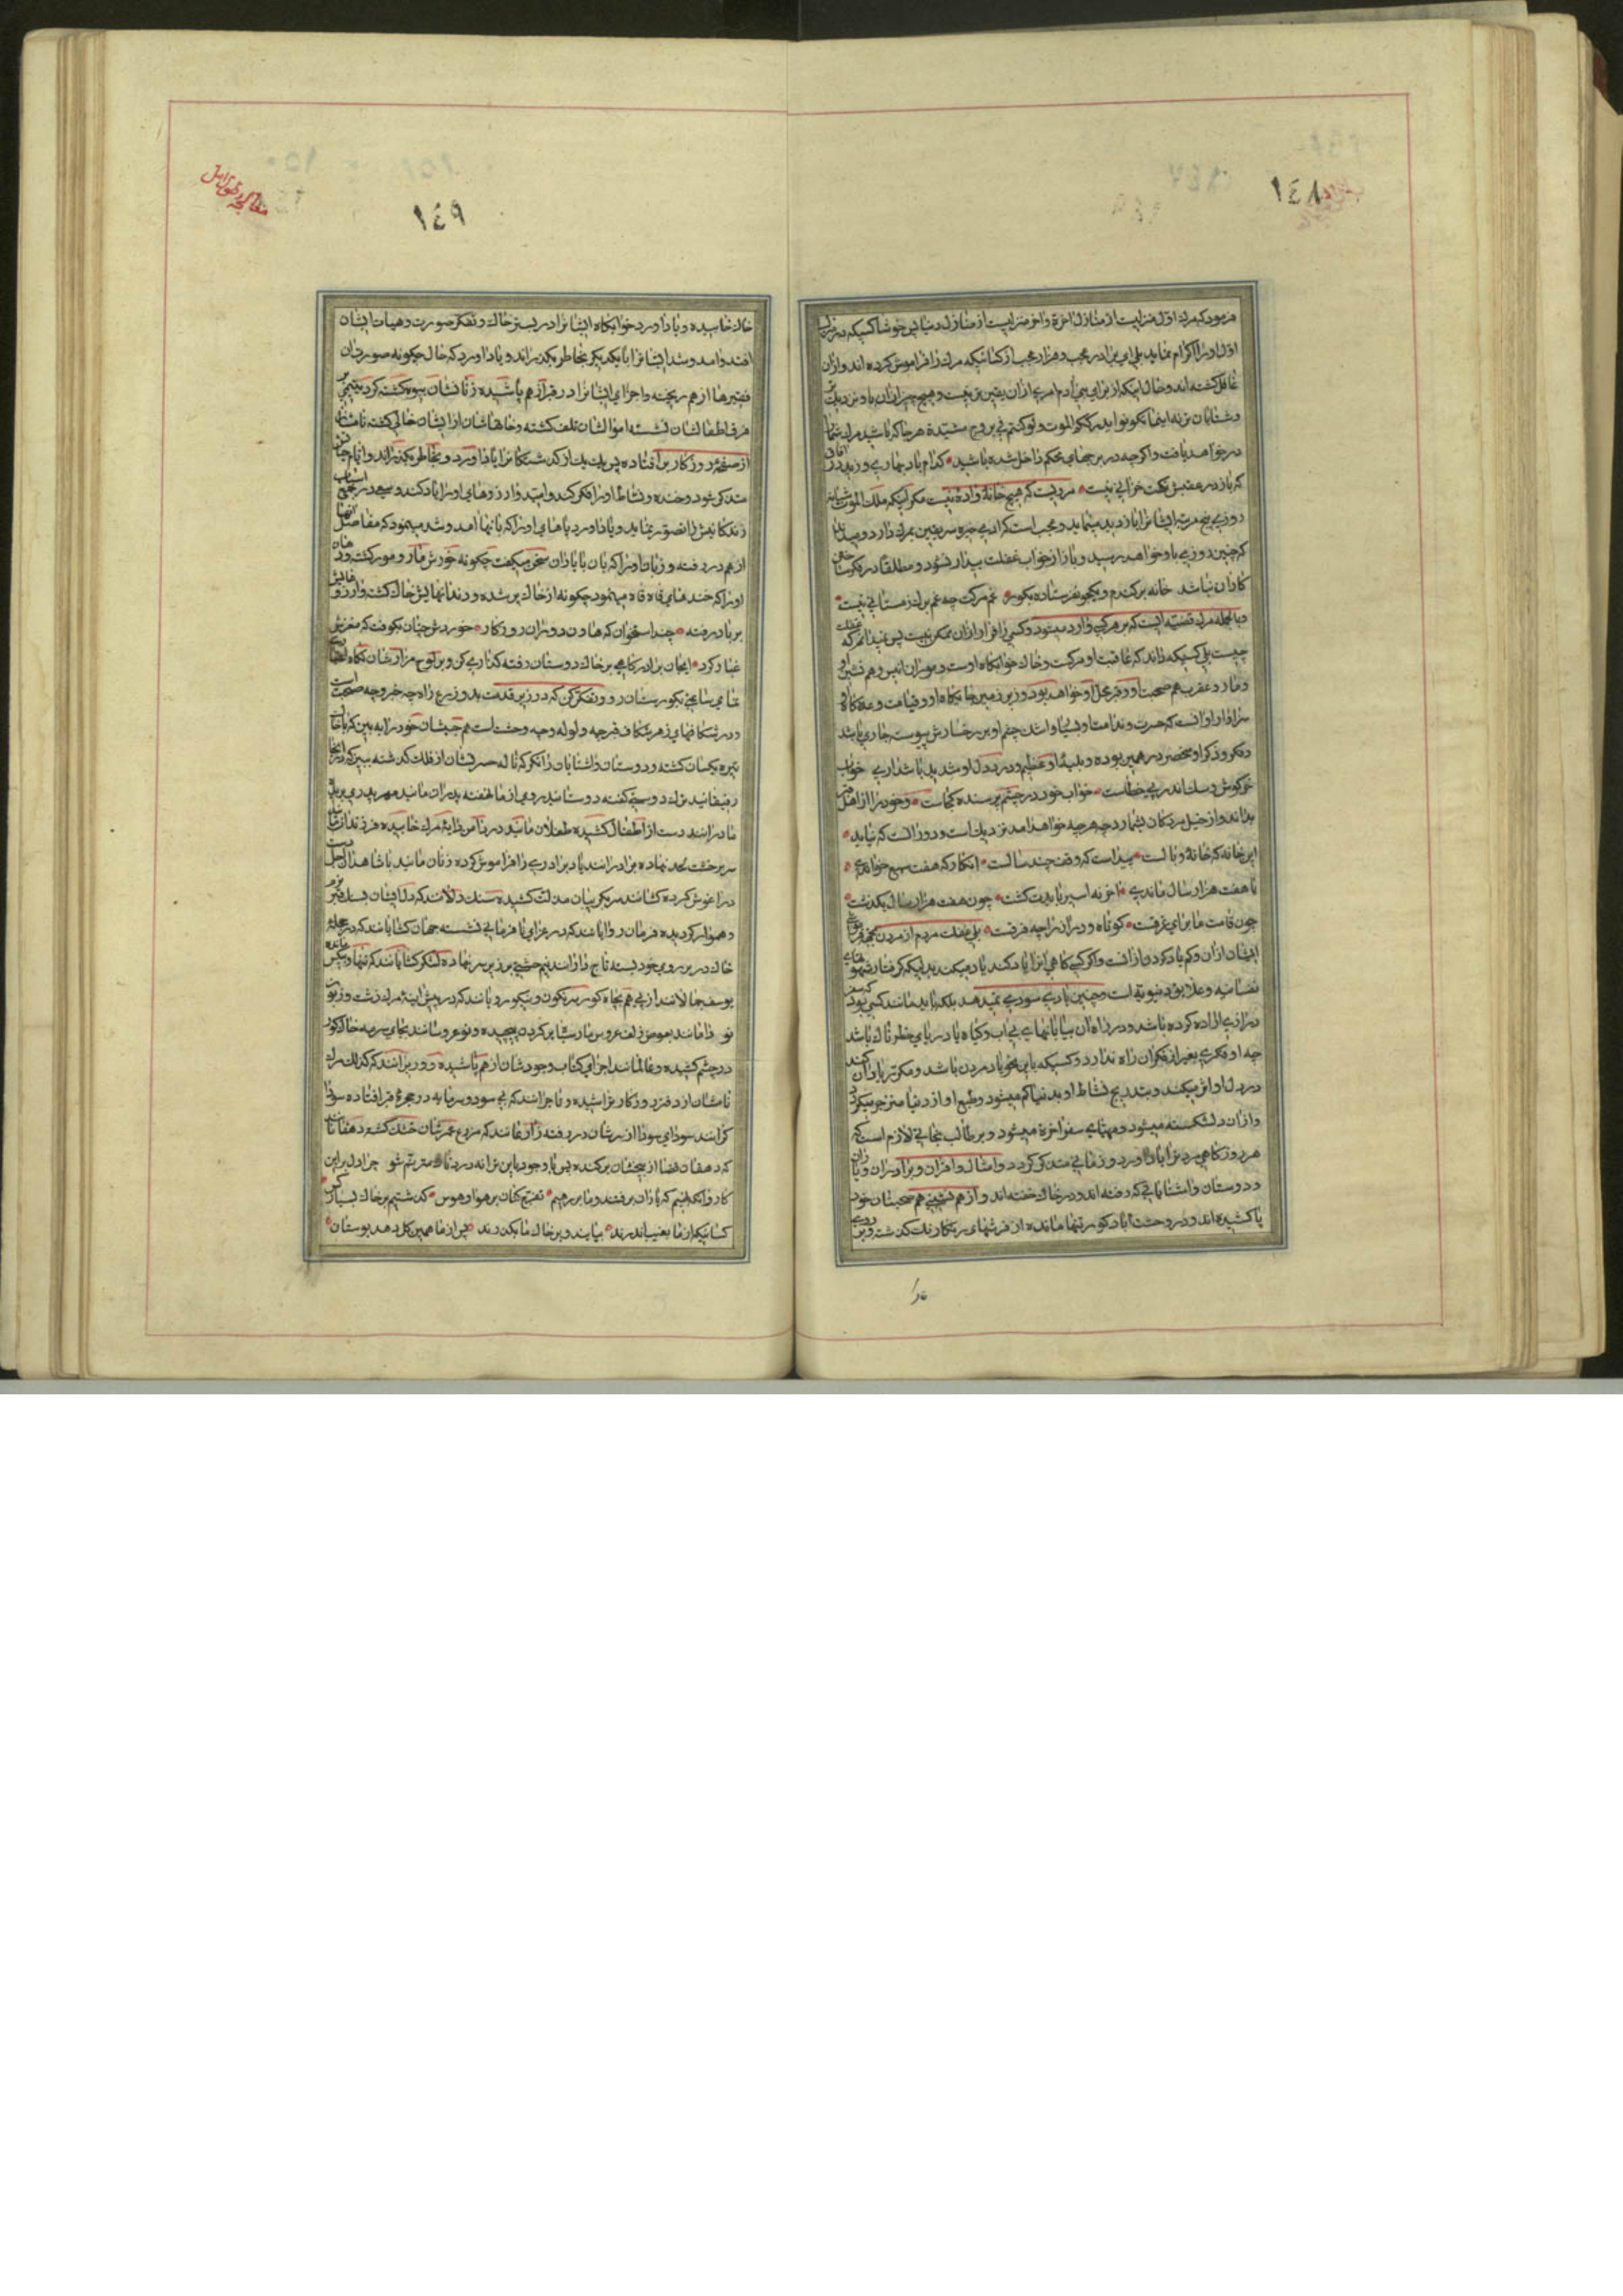 ١٤٨
فرمود که مرك اول منزلیست از منازل اخرة واخر منزلیست از منازل دنیا پس خوشا کسیکه در منزل
اول او را اکرام نمایند بلی ای برادر عجب و هزار عجب از کسانیکه مرك را فراموش کرده اند و از ان
غافل کشته اند و حال اینکه از برای بنی ادم امری از ان یقین تر نیست و هیچ چیز از ان باو نزدیك
و شتابان تر نه اینما تکونوا یدرککم الموت ولو کنتم فی بروج مشیدة هر جا که باشید مرك شما را
در خواهد یافت و اکرچه در برجهای محکم داخل شده باشید کدام باد بهاری وزید در افاق
که باز در عقبش نکبت خزانی نیست مرویست که هیچ خانۀ واده نیست مکر اینکه ملك الموت شبانه
روزی پنج مرتبه ایشانرا بازدید مینماید و عجب است که ادمی خیره سر یقین بمرك دارد و میداند
که چنین روزی باو خواهد رسید و باز از خواب غفلت بیدار نشود و مطلقا در فکر
کار ان نباشد خانه پر کندم و یکجو نفرستاده بکور غم مرکت چه غم برك زمستانی نیست
و بالجمله مرك قضیه ایست که بر هرکس وارد میشود و کسی را فرار از ان ممکن نیست پس نمیدانم که غفلت
چیست بلی کسیکه داند که عاقبت او مرکست و خاك خوابکاه اوست و موران انیس و هم نشین او
و مار و عقرب هم صحبت او و قبر محل او خواهد بود و زیر زمین جایکاه او و قیامت وعده کاه او
سزاوار او انست که حسرت و ندامت او بسیار و اشك چشم او بر رخسارش پیوسته جاری باشد
و فکر و ذکر او منحصر در همین بوده و بلیۀ او عظیم و درد دل او شدید باشد اری خواب
خرکوش و سك اندر پی خطاست خواب خود در چشم ترسنده کجاست و خود را از اهل قبور
بداند و از خیل مردکان بشمارد چه هرچه خواهد امد نزدیك است و دور انست که نیاید
این خانه که خانۀ وبالست پیداست که وقف چند سالست انکار که هفت سبع خواندی
یا هفت هزار سال ماندی اخر نه اسیر بایدت کشت چون هفت هزار سال بکذشت
چون قامت ما برای غرقست کوتاه و دراز را چه فرقست بلی غفلت مردم از مردن بجهة فراموشی
ایشان از ان و کم یاد کردن از انست و اکر کسی کاهی انرا یاد کند یاد میکند بدلیکه کرفتار شهوتهای
نفسانیه و علایق دنیویه است و چنین یادی سودی نمیدهد بلکه باید مانند کسی بود که سفر
درازی اراده کرده باشد و در راه ان بیابانهای بی اب و کیاه یا دریای خطرناك باشد
چه او فکری بغیر از فکر ان راه ندارد و کسیکه باین نحو یاد مردن باشد و مکرر یاد ان کند
در دل او اثر میکند و بتدریج نشاط او بدنیا کم میشود و طبع او از دنیا منزجر میکردد
و از ان دلشکسته میشود و مهیای سفر اخرة میشود و بر طالب نجات لازم است که
هر روز کاهی مردنرا یاد اورد و زمانی متذکر کردد و امثال و اقران و برادران و یاران
و دوستان و اشنایانی که رفته اند و در خاك خفته اند و از هم نشینی هم صحبتان خود
پا کشیده اند و در وحشت اباد کور تنها مانده از فرشهای رنکارنك کذشته و بر روی
١٤٩
معالجۀ طول امل
خاك خابیده و یاد اورد خوابکاه ایشانرا در بستر خاك و تفکر صورت و هیات ایشان
افتد و امد و شد ایشانرا با یکدیکر بخاطر بکذراند و یاد اورد که حال چکونه صورتشان در
قبرها از هم ریخته و اجزای ایشانرا در قبر از هم پاشیده زنانشان بیوه کشته کرد یتیمی بر
فرق اطفالشان نشسته اموالشان تلف کشته و خانهاشان از ایشان خالی کشته نامشان
از صفحۀ روزکار بر افتاده پس یك یك از کذشتکانرا یاد اورد و بخاطر بکذراند و ایام حیاتش
متذکر شود و خنده و نشاط او را فکر کند و امید و ارزوهای او را یاد کند و سعی در جمع اسباب
زندکانیش را تصور نماید و یاد اورد پاهای او را که بانها امد و شد مینمود که مفاصل انها
از هم در رفته و زبان او را که بان با یاران سخن میکفت چکونه خورش مار و مور کشت و دهان
او را که خندهای قاه قاه مینمود چکونه از خاك پر شده و دندانهایش خاك کشت و ارزوهایش
بر باد رفته چند استخوان که هاون دوران روزکار خوردش چنان بکوفت که مغزش
غبار کرد ایجان برادر کاهی بر خاك دوستان رفته کذاری کن و بر لوح مزارشان نکاه
تمامی ساعتی بکورستان رو و تفکر کن که در زیر قدمت بدو زرع راه چه خبر و چه صحبت است
و در شکافهای زهر شکاف قبر چه ولوله و چه وحشت است هم جنسان خود را به بین که با خاك
تیره یکسان کشته و دوستان و اشنایان را نکر که ناله حسرتشان از فلك کذشته ببین که در انجا
رفیقانند ترك دوستی کفته دوستانند روی از ما نهفته پدرانند مهر پدری بریده
مادرانند دست از اطفال کشیده طفلان مانند در دامن دایۀ مرك خابیده فرزندانند
سر بر خشت لحد نهاده برادرانند یاد برادری را فراموش کرده زنان مانند با شاهد اجل دست
در اغوش کرده کشانند سر بکریبان مذلت کشیده سنك دلانند که دلهایشان بسنك قبر نرم
و هموار کردیده فرمان روایانند که در عزای نافرمانی نشسته جهان کشایانند که در حجلۀ
خاك در بر روی خود بسته تاج دارانند نیم خشتی بر زیر سر نهاده لشکر کشانانند که تنها و بیکس مانده
یوسف جمالانند از پی هم بچاه کور سرنکون و نیکورویانند که در پیش اینۀ مرك زشت و زبون
نو دامادانند بعوض زلف عروس مار سیاه بر کردن پیچیده و نوعروسانند بجای سرمه خاك کور
در چشم کشیده و عالمانند اجزای کتاب وجودشان از هم پاشیده و وزیرانند که کذلك مرك
نامشان از دفتر روزکار تراشیده و تاجرانند که بی سود و سرمایه در حجرۀ قبر افتاده سودا
کرانند سودای سود از سرشان در رفته زارعانند که مزرع عمرشان خشك کشته دهقانانند
که دهقان قضا از بیخشان برکنده پس با وجود باین ترانه دردناك مترنم شو چرا دل بر این
کاروانکه نهیم که یاران برفتند و ما بر رهیم تفرج کنان بر هوا و هوس کذشتیم بر خاك بسیار کس
کسانیکه از ما بغیب اندرند بیایند و بر خاك ما بکذرند پس از ما همین کل دهد بوستان